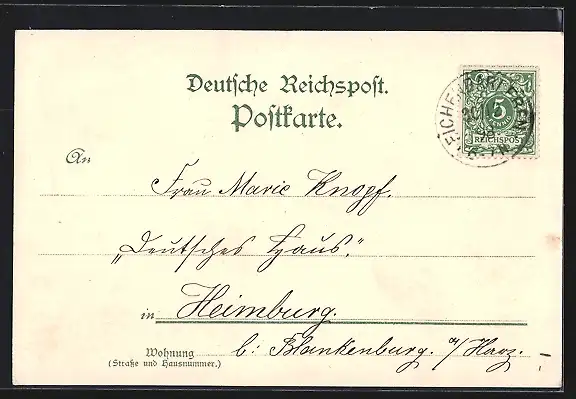 Deutsche Reichspost.
Postkarte.
5
REICHSPOST
An
Frau Marie Knopf.
„Deutsches Haus."
in Heimburg.
Wohnung b: Blankenburg. a/Harz.
(Straße und Hausnummer.)